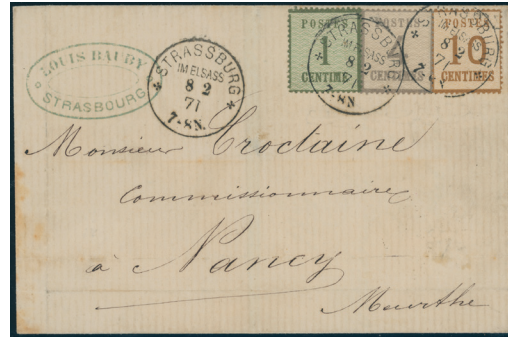 LOUIS BAUBY
STRASBOURG
* STRASSBURG *
IM ELSASS
8 2
71
7-8N.
POSTES
1
CENTIME
POSTES
CENTIMES
POSTES
10
CENTIMES
* STRASSBURG *
IM ELSASS
8 2
71
7-8N
STRASSBURG
IM ELSASS
8 2
71
Monsieur Croctaine
Commissionnaire
à Nancy
Meurthe